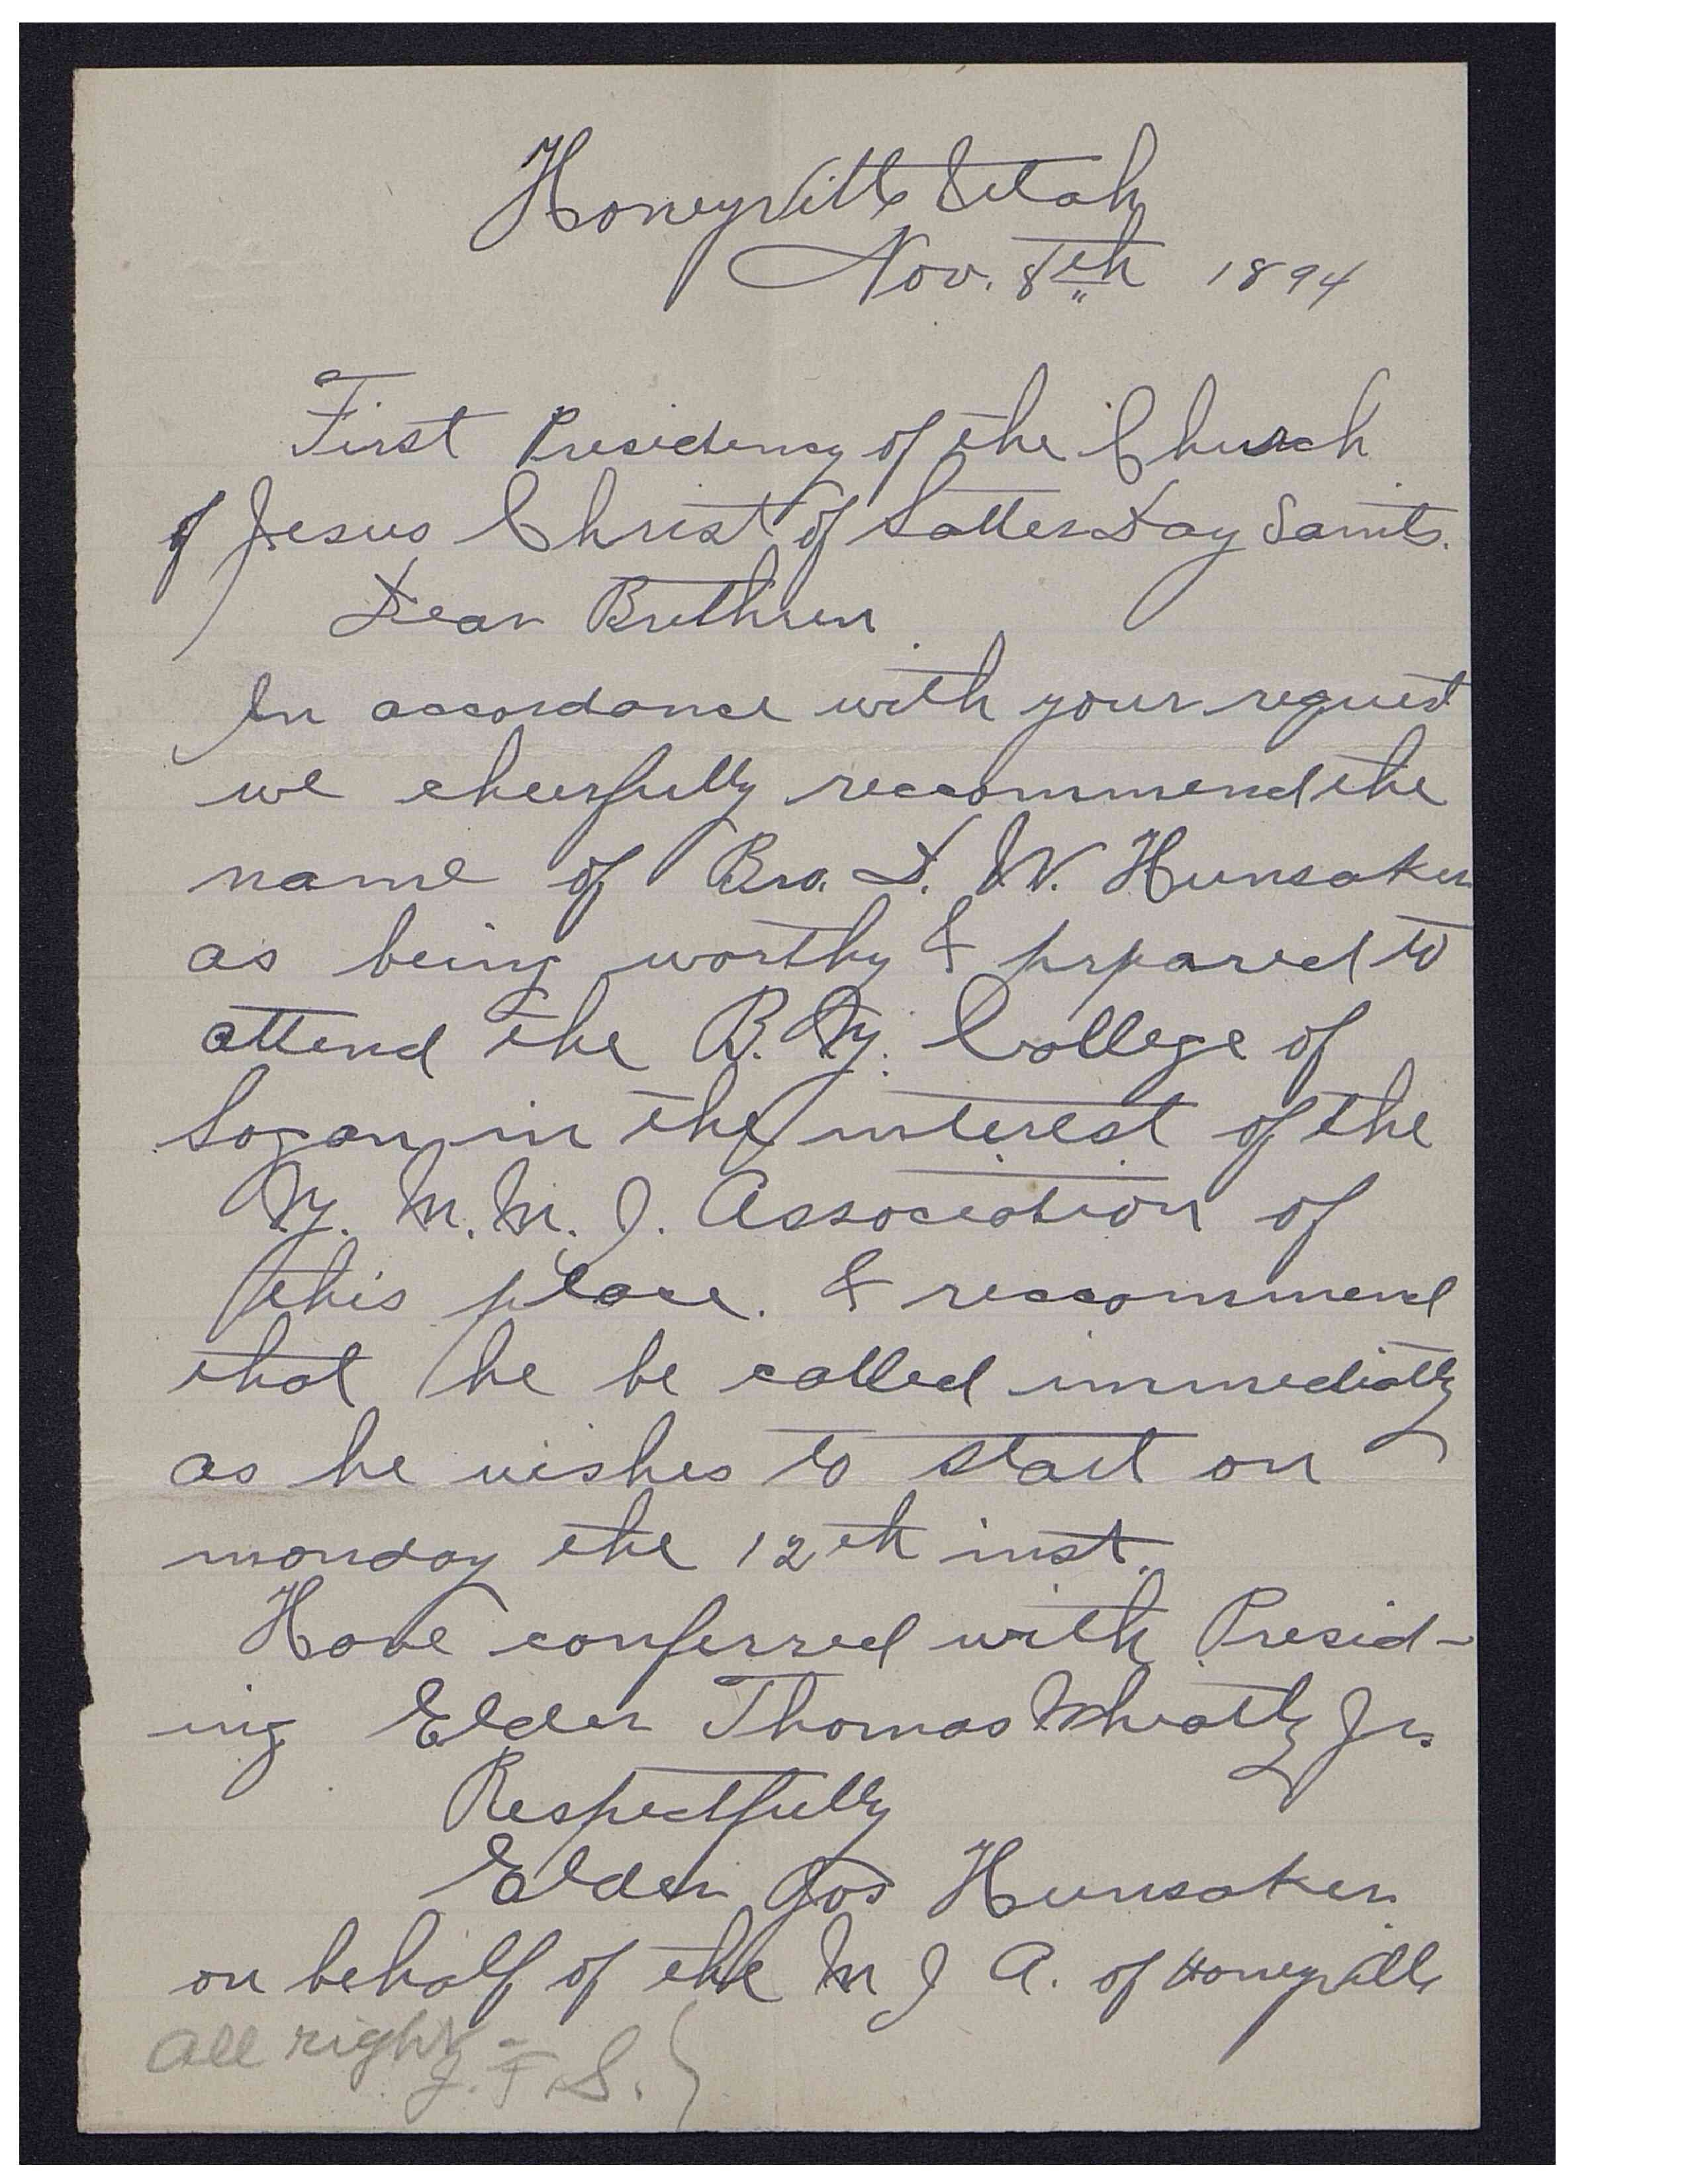 Honeyville Utah
Nov. 8th 1894
First Presidency of the Church
of Jesus Christ of Latter Day Saints.
Dear Brethren
In accordance with your request
we cheerfully reccommend the
name of Bro. D. W. Hunsaker
as being worthy & prpared to
attend the B. Y. College of
Logan in the interest of the
Y. M. M. I. Association of
this place. & reccommend
that he be called immediatly
as he wishes to start on
monday the 12th inst.
Have conferred with Presid-
ing Elder Thomas Wheatly Jr.
Respectfully
Elder Jos Hunsaker
on behalf of the M I A. of Honeyville
All right
J. F. S.